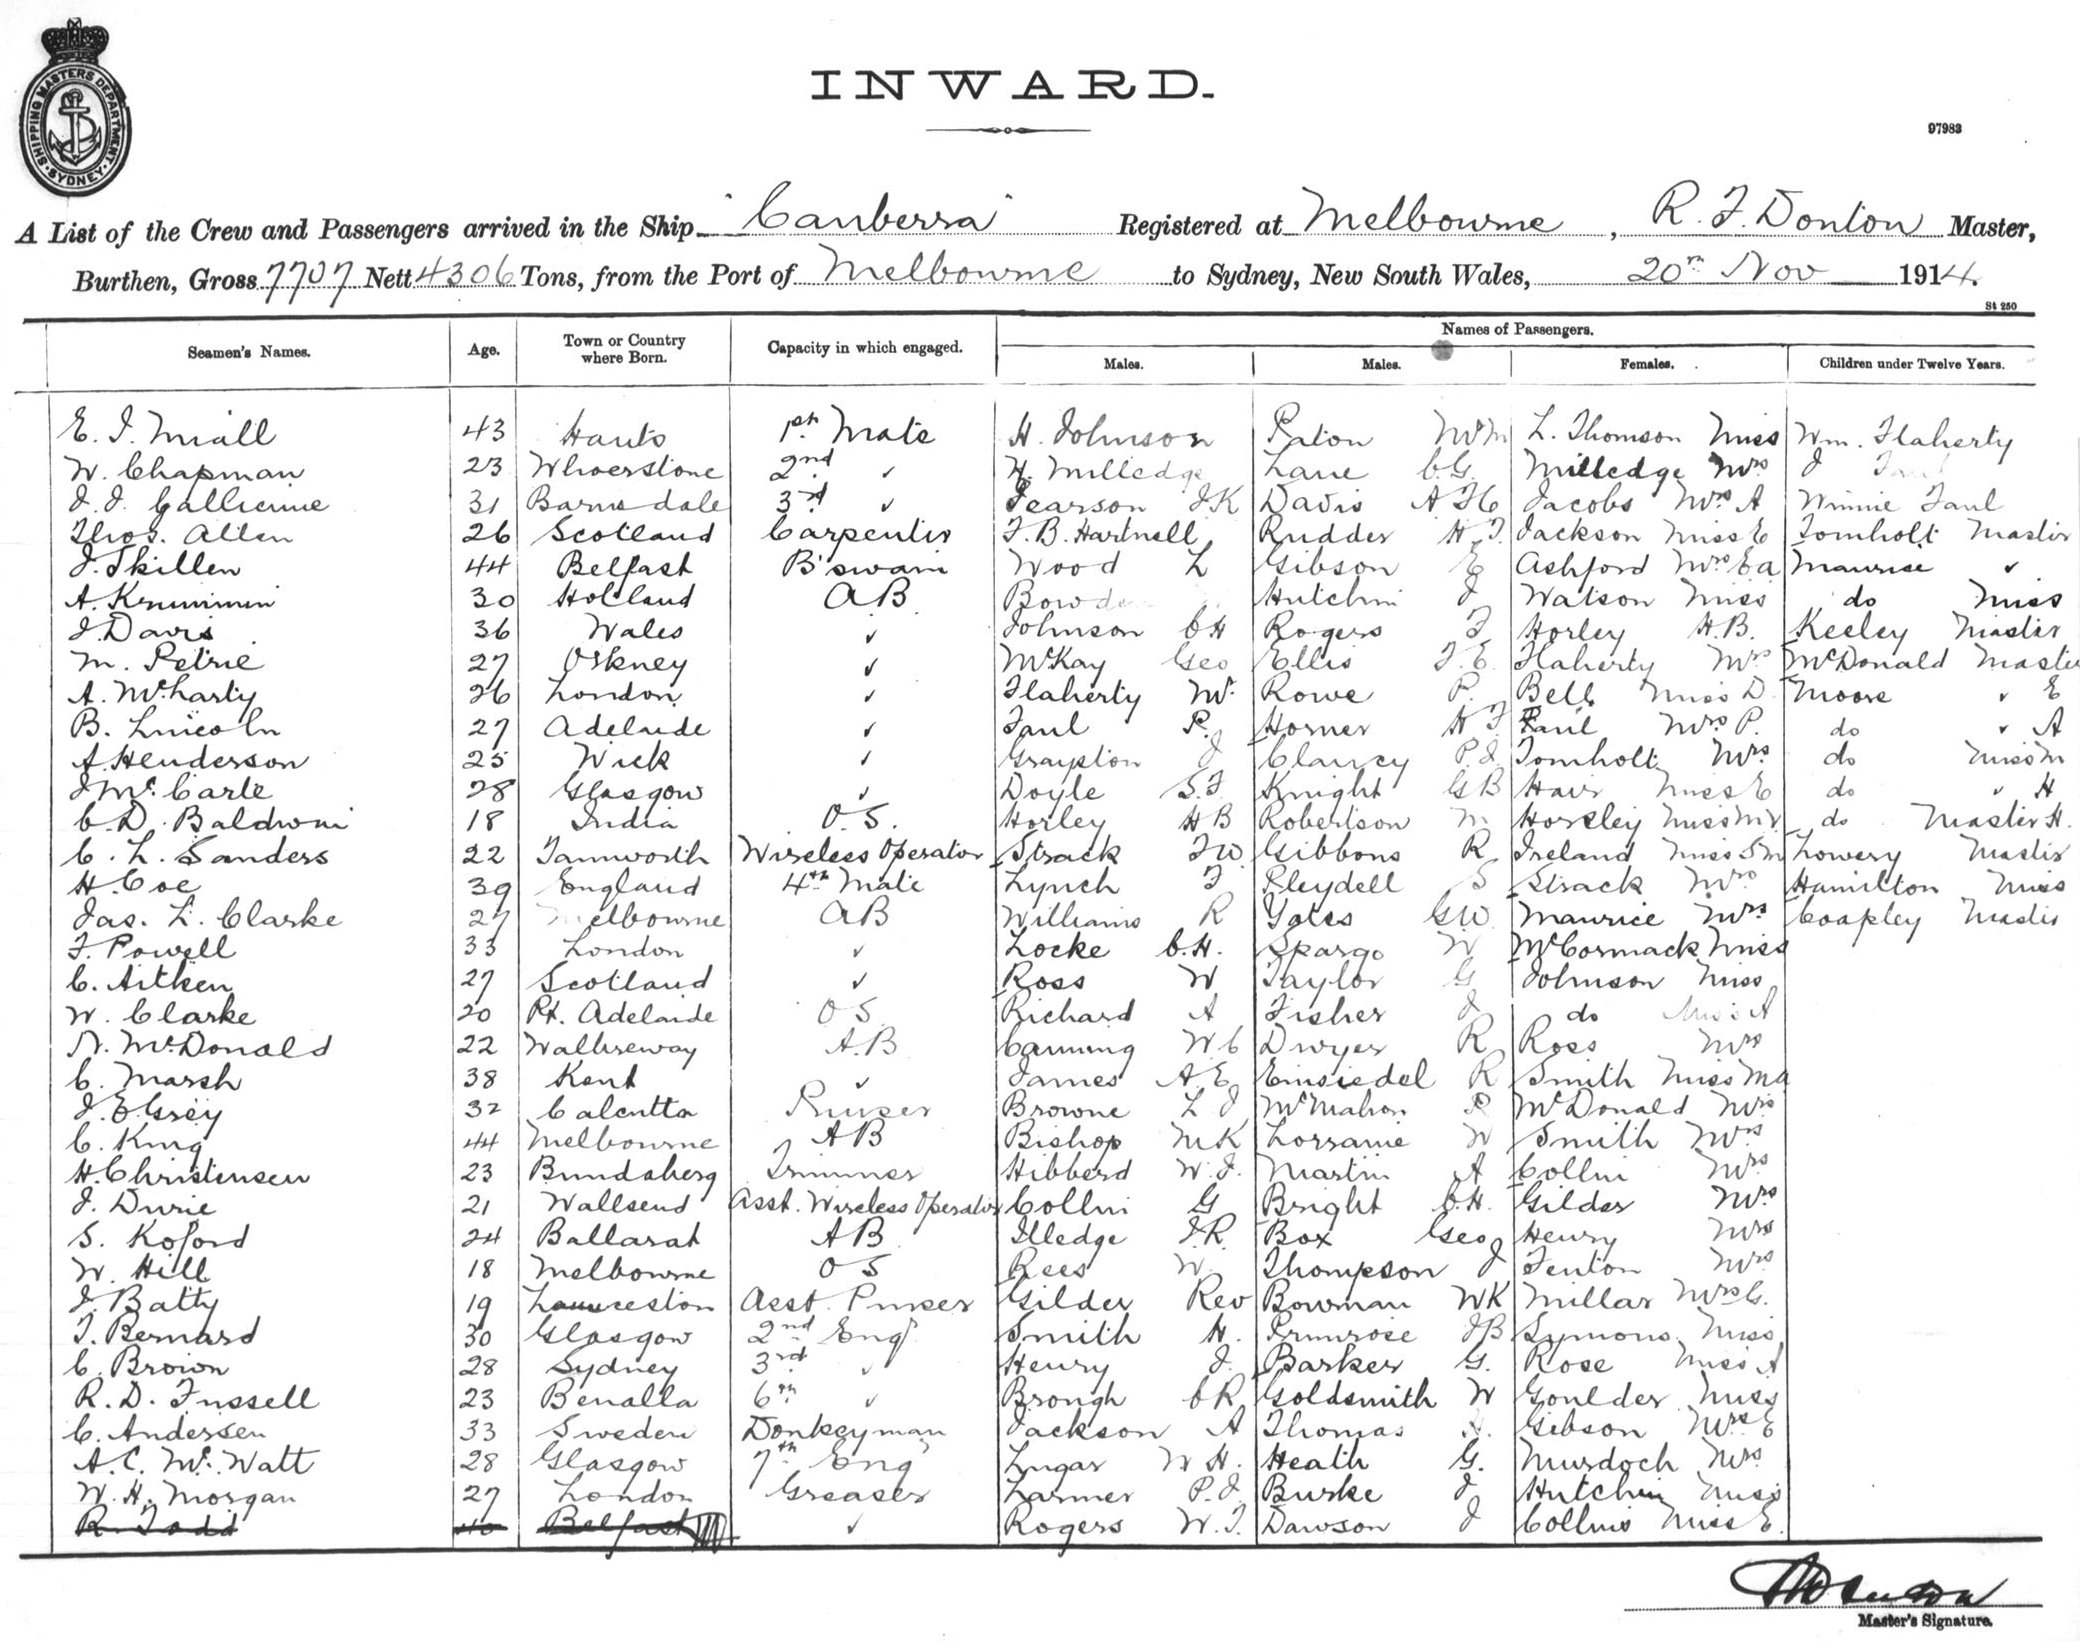 SHIPPING MASTERS DEPARTMENT
SYDNEY
INWARD.
97983
A List of the Crew and Passengers arrived in the Ship "Canberra" Registered at Melbourne, R. F. Donton Master,
Burthen, Gross 7707 Nett 4306 Tons, from the Port of Melbourne to Sydney, New South Wales, 20th Nov 1914.
St 250
Names of Passengers.
Seamen's Names. Age. Town or Country where Born. Capacity in which engaged. Males. Males. Females. Children under Twelve Years.
E. J. Miall 43 Hants 1st Mate H. Johnson Paton Wm L. Thomson Miss Wm. Flaherty
W. Chapman 23 2nd ✓ Milledge Lane C.G. Milledge Mrs J
J. J. Gallienne 31 Barnsdale 3rd ✓ Pearson JK Davis A Jacobs Mrs A Winnie Faul
Thos. Allen 26 Scotland Carpenter F. B. Hartnell Rudder H. J. Jackson Miss E Tomholt Master
J. Skillen 44 Belfast B'swain Wood L Gibson E Ashford Mrs E a Maurice ✓
A. Krummin 30 Holland AB Bowde Hutchin J Watson Miss do Miss
J. Davis 36 Wales ✓ Johnson C H Rogers F Horley H.B. Keeley Master
M. Petrie 27 Orkney ✓ McKay Geo Ellis F. E. Flaherty Mrs McDonald Master
A. McCharty 26 London ✓ Flaherty Mr Rowe P. Bell Miss D. Moore ✓ E
B. Lincoln 27 Adelaide ✓ Faul P. Horner H F Faul Mrs P. do ✓ A
A. Henderson 25 Wick ✓ Grayston J Clancy P. J. Tomholt Mrs do Miss M
J. McCarle 28 Glasgow ✓ Doyle S. F. Knight G B Hair Miss E do ✓ H
C. D. Baldwin 18 India O.S. Horley H B Robertson M Horsley Miss do Master H.
C. L. Sanders 22 Tamworth Wireless Operator Strack F W Gibbons R Ireland Miss S M Lowery Master
H. Coe 39 England 4th Mate Lynch F Pleydell S Strack Mrs Hamilton Miss
Jas. L. Clarke 27 Melbourne AB Williams R Yates G W Maurice Mrs Coapley Master
F. Powell 33 London ✓ Locke C. H. Spargo W McCormack Miss
C. Aitken 27 Scotland ✓ Ross W Taylor G Johnson Miss
W. Clarke 20 Pt. Adelaide O S Richard A Fisher J do Miss A
N. McDonald 22 Walhreway A.B Canning W C Dwyer R Ross Mrs
C. Marsh 38 Kent ✓ James A. E. Einsiedel R Smith Miss Ma
J. E. Grey 32 Calcutta Purser Browne L J McMahon P McDonald Mrs
C. King 44 Melbourne AB Bishop M K Lorraine W Smith Mrs
H. Christensen 23 Bundaberg Trimmer Hibberd W. J. Martin A Collin Mrs
J. Durie 21 Wallsend Asst. Wireless Operator Collin G Bright C. H. Gilder Mrs
S. Koford 24 Ballarat AB Illedge J. R. Box Geo Henry Mrs
W. Hill 18 Melbourne O S Rees W. Thompson J Fenton Mrs
J. Batty 19 Launceston Asst. Purser Gilder Rev Bowman WK Millar Mrs C.
T. Bernard 30 Glasgow 2nd Engr Smith H. Primrose J B Symons Miss
C. Brown 28 Sydney 3rd ✓ Henry J. Barker G. Rose Miss A
R. D. Fussell 23 Benalla 6th ✓ Brough C R Goldsmith W Goulder Miss
C. Andersen 33 Sweden Donkeyman Jackson A Thomas H. Gibson Mrs E
A. C. McWatt 28 Glasgow 7th Eng Lugar W H. Heath G. Murdoch Mrs
W. H. Morgan 27 London Greaser Larmer P. J. Burke J Hutchin Miss
R. Todd 40 Belfast ✓ Rogers W. J. Dawson J Collins Miss E.
Master's Signature.